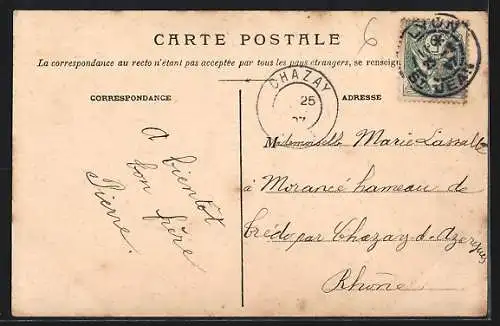 CARTE POSTALE
6
La correspondance au recto n'étant pas acceptée par tous les pays étrangers, se renseign
LYON
ST JEAN
CHAZAY
25
07
CORRESPONDANCE
ADRESSE
A
bientôt
ton frère
Pierre.
Mademoiselle Marie Lassalle
à Morancé hameau de
Crédo par Chazay-d-Azergues
Rhône